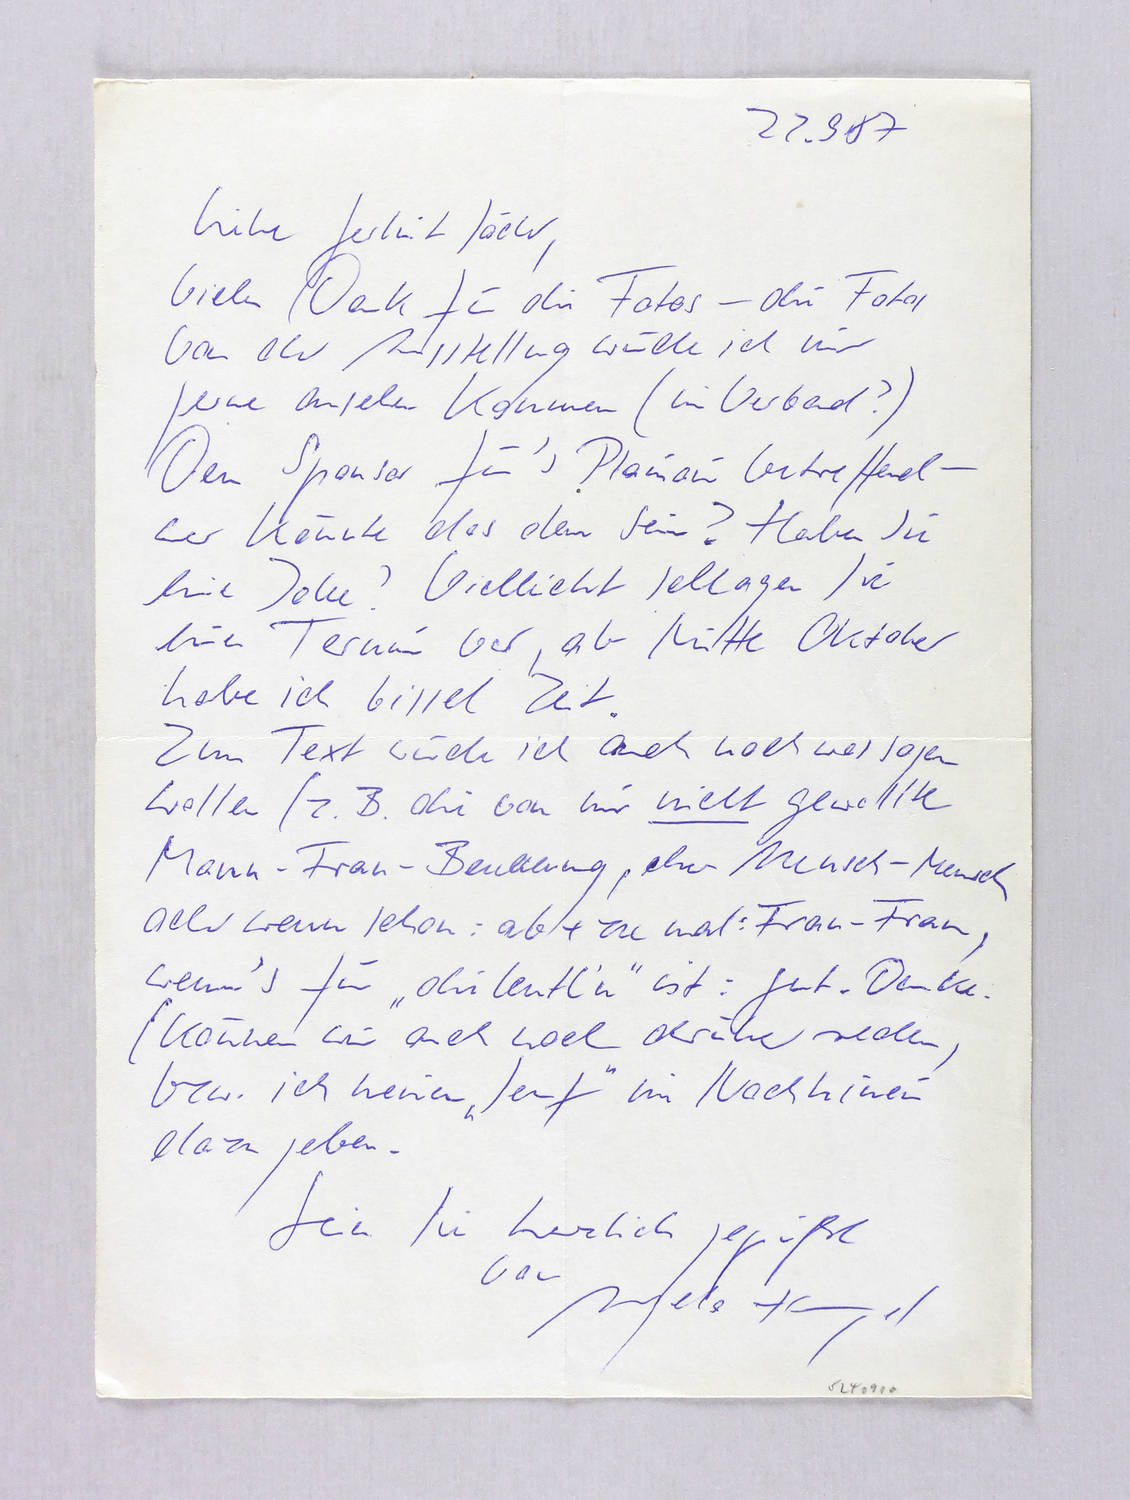 22.9.87
Liebe Gerlint Söder,
vielen Dank für die Fotos – die Fotos
von der Ausstellung würde ich mir
gerne ansehen kommen (im Verband?)
Den Sponsor für's betreffend –
wer könnte das denn sein? Haben Sie
eine Idee? Vielleicht schlagen Sie
einen Termin vor, ab Mitte Oktober
habe ich bissel Zeit.
Zum Text würde ich auch noch was sagen
wollen (z. B. die von mir nicht gewollte
Mann-Frau-Beziehung, eher Mensch-Mensch
oder wenn schon: ab + zu mal: Frau-Frau,
wenn's für „die Leut'ln“ ist: gut. Danke.
(Können wir auch noch drüber reden,
bzw. ich meinen „Senf“ im Nachhinein
dazu geben.
Seien Sie herzlich gegrüßt
von
Angela Hampel
5240900